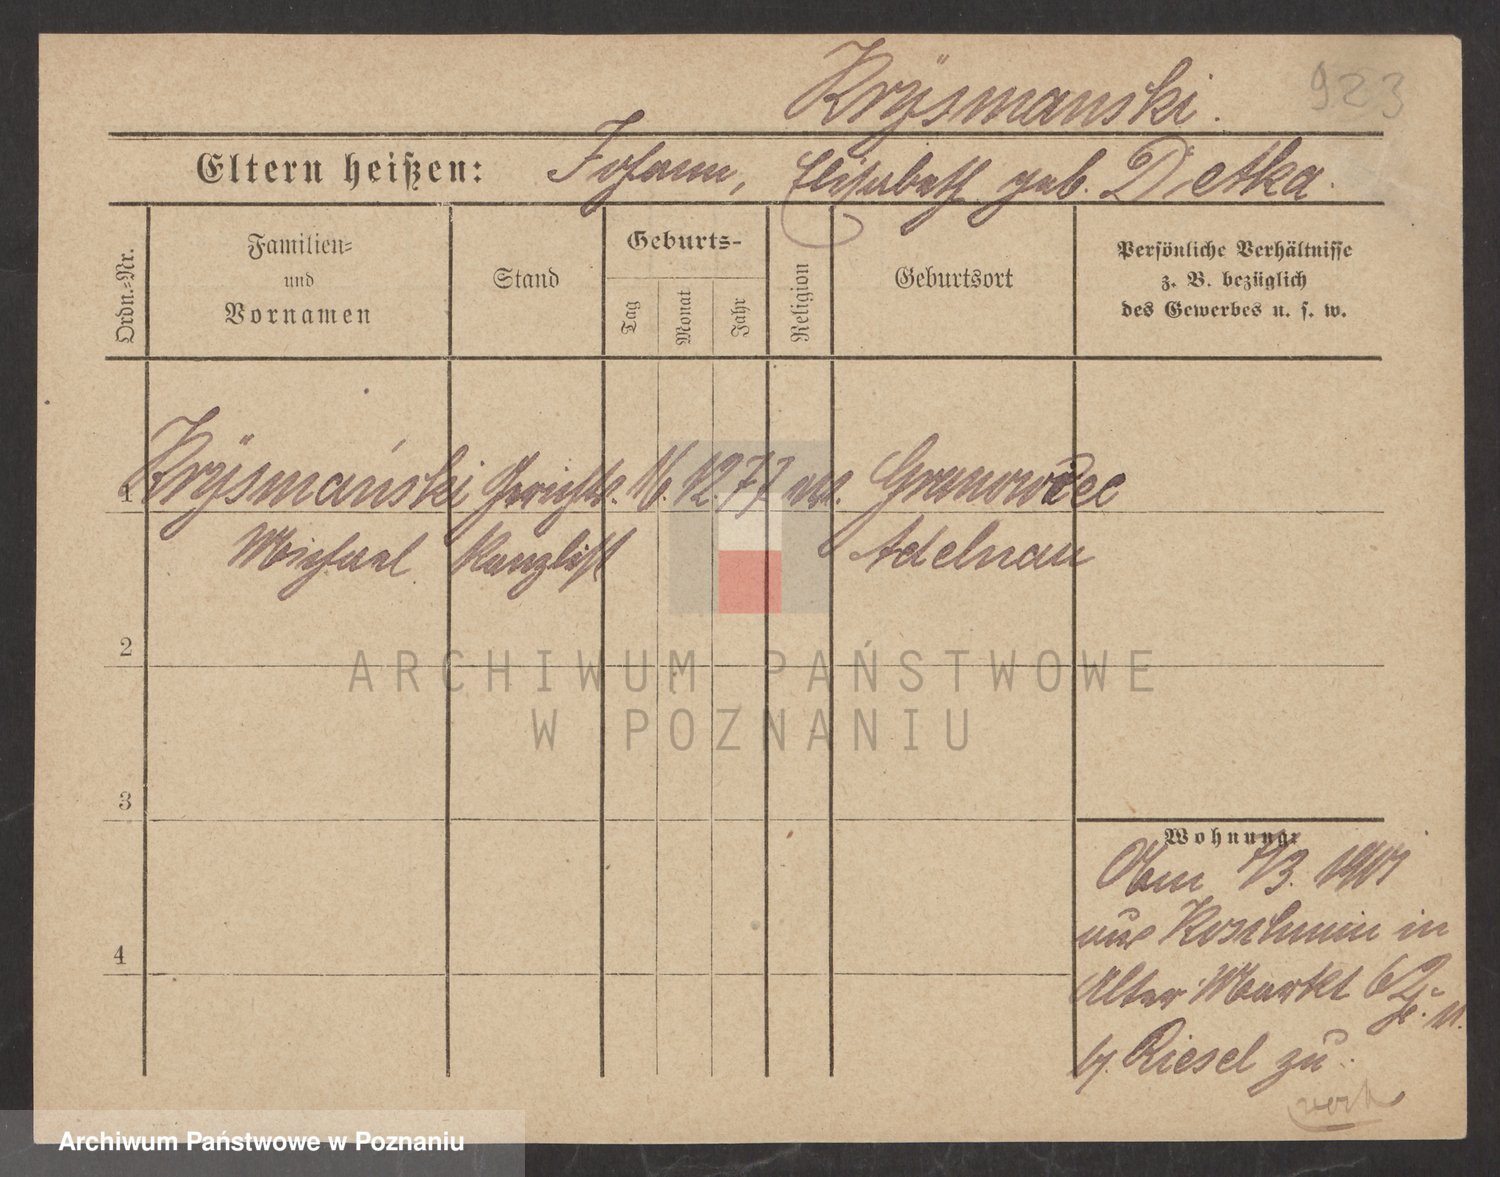 Krÿsmanski. 923
Eltern heißen: Johann, Elisabeth geb. Detka.
Ordn.-Nr.
Familien-
und
Vornamen
Stand
Geburts-
Tag
Monat
Jahr
Religion
Geburtsort
Persönliche Verhältnisse
z. B. bezüglich
des Gewerbes u. s. w.
1 Krÿsmański Gerichts. 16. 12. 77
Michael Kanzlist Adelnau
2
3
4
Wohnung:
1/3. 1901
aus Koschmin in
Alter Markt 62
b/. Riesel zu
ARCHIWUM PAŃSTWOWE
W POZNANIU
Archiwum Państwowe w Poznaniu